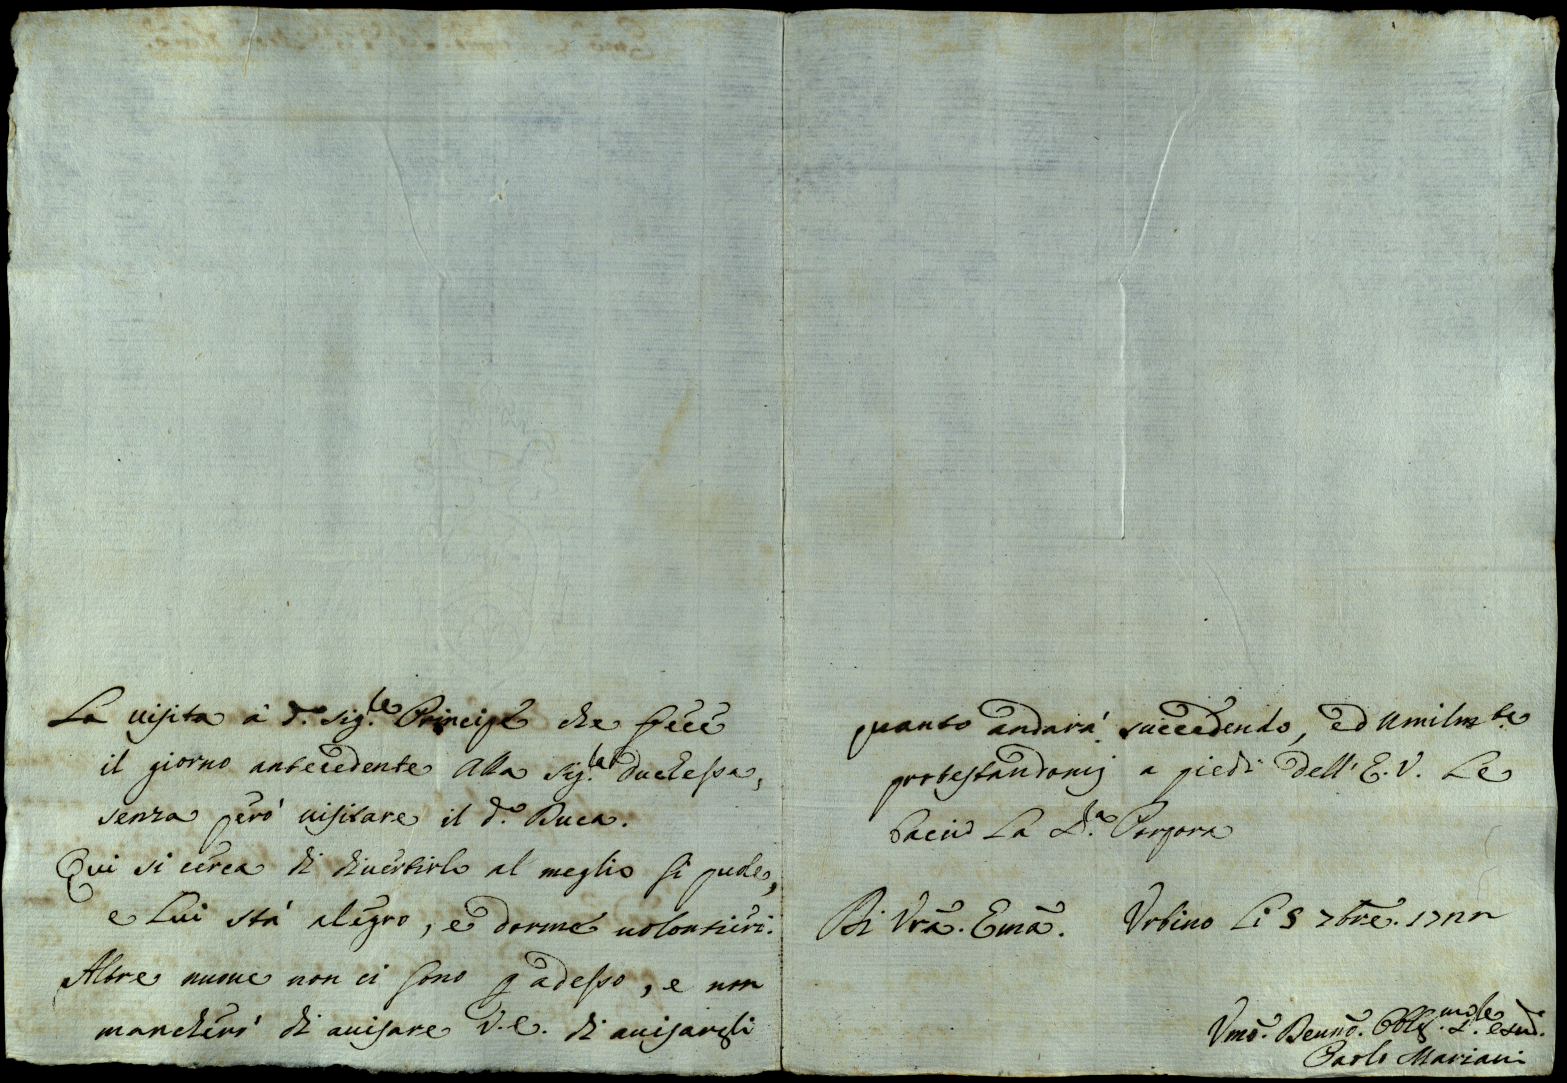 La uisita à d.º Sig.le Principe che fece
il giorno antecedente alla Sig.la Duchessa,
senza però uisitare il d.º Duca.
Qui si cerca di diuertirlo al meglio si puole,
e Lui stà alegro, e dorme uolontieri.
Altre nuoue non ci sono p adesso, e non
mancherò di auisare V.E. di auisargli
quanto andarà succedendo, ed umilm.te
protestandomi a piedi dell' E.V. Le
bacio La S.ª Porpora
Di Vrã. Emã. Urbino Li 5 7bre. 1722
Umõ. Deumõ. Obblg.mo
Paolo Mariani